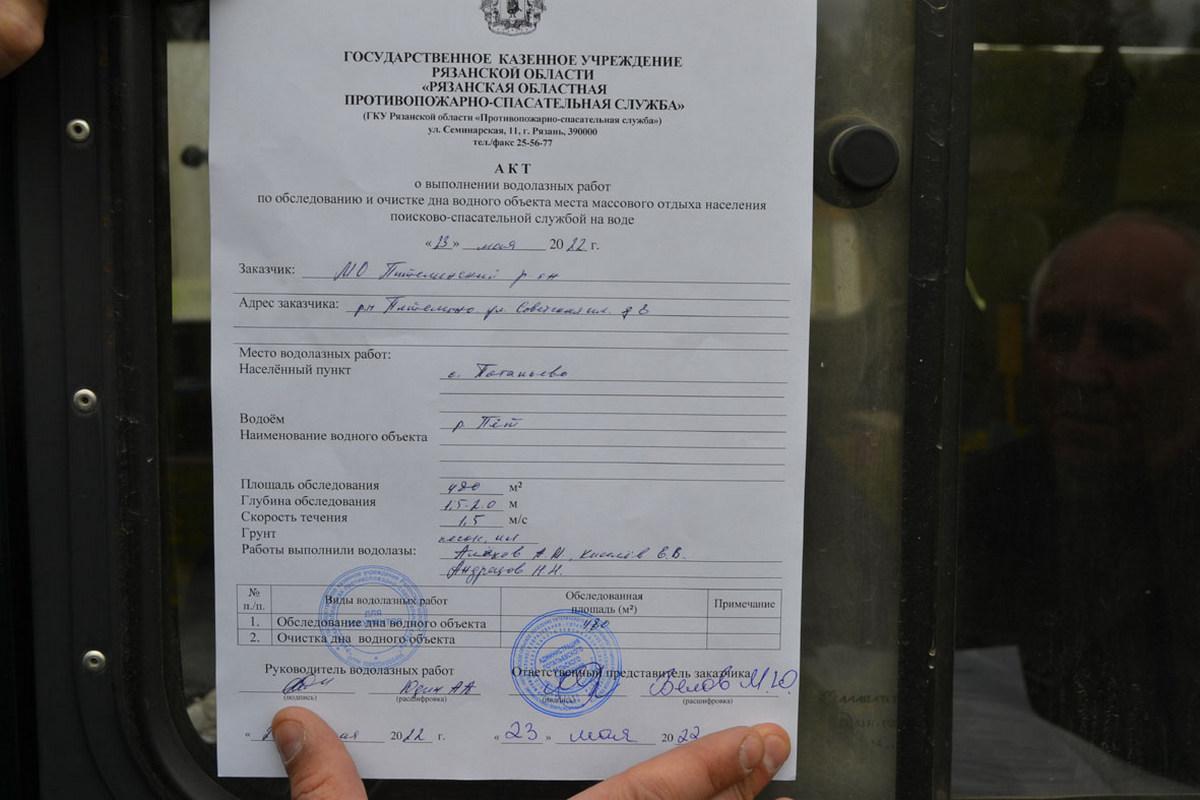 ГОСУДАРСТВЕННОЕ КАЗЕННОЕ УЧРЕЖДЕНИЕ
РЯЗАНСКОЙ ОБЛАСТИ
«РЯЗАНСКАЯ ОБЛАСТНАЯ
ПРОТИВОПОЖАРНО-СПАСАТЕЛЬНАЯ СЛУЖБА»
(ГКУ Рязанской области «Противопожарно-спасательная служба»)
ул. Семинарская, 11, г. Рязань, 390000
тел./факс 25-56-77
А К Т
о выполнении водолазных работ
по обследованию и очистке дна водного объекта места массового отдыха населения
поисково-спасательной службой на воде
«23» мая 2022 г.
Заказчик: МО Пителинский р-он
Адрес заказчика: рп Пителино ул. Советская пл. д 8
Место водолазных работ:
Населённый пункт с. Потапьево
Водоём р Пёт
Наименование водного объекта
Площадь обследования 480 м²
Глубина обследования 1,5-2.0 м
Скорость течения 1,5 м/с
Грунт песок, ил
Работы выполнили водолазы: А.И., Киселёв В.В.
Н.Н.
№ п./п. Виды водолазных работ Обследованная площадь (м²) Примечание
1. Обследование дна водного объекта 480
2. Очистка дна водного объекта
Руководитель водолазных работ Ответственный представитель заказчика
Юдин АА Белов М.Ю.
(подпись) (расшифровка) (подпись) (расшифровка)
« 2022 г. «23» мая 2022